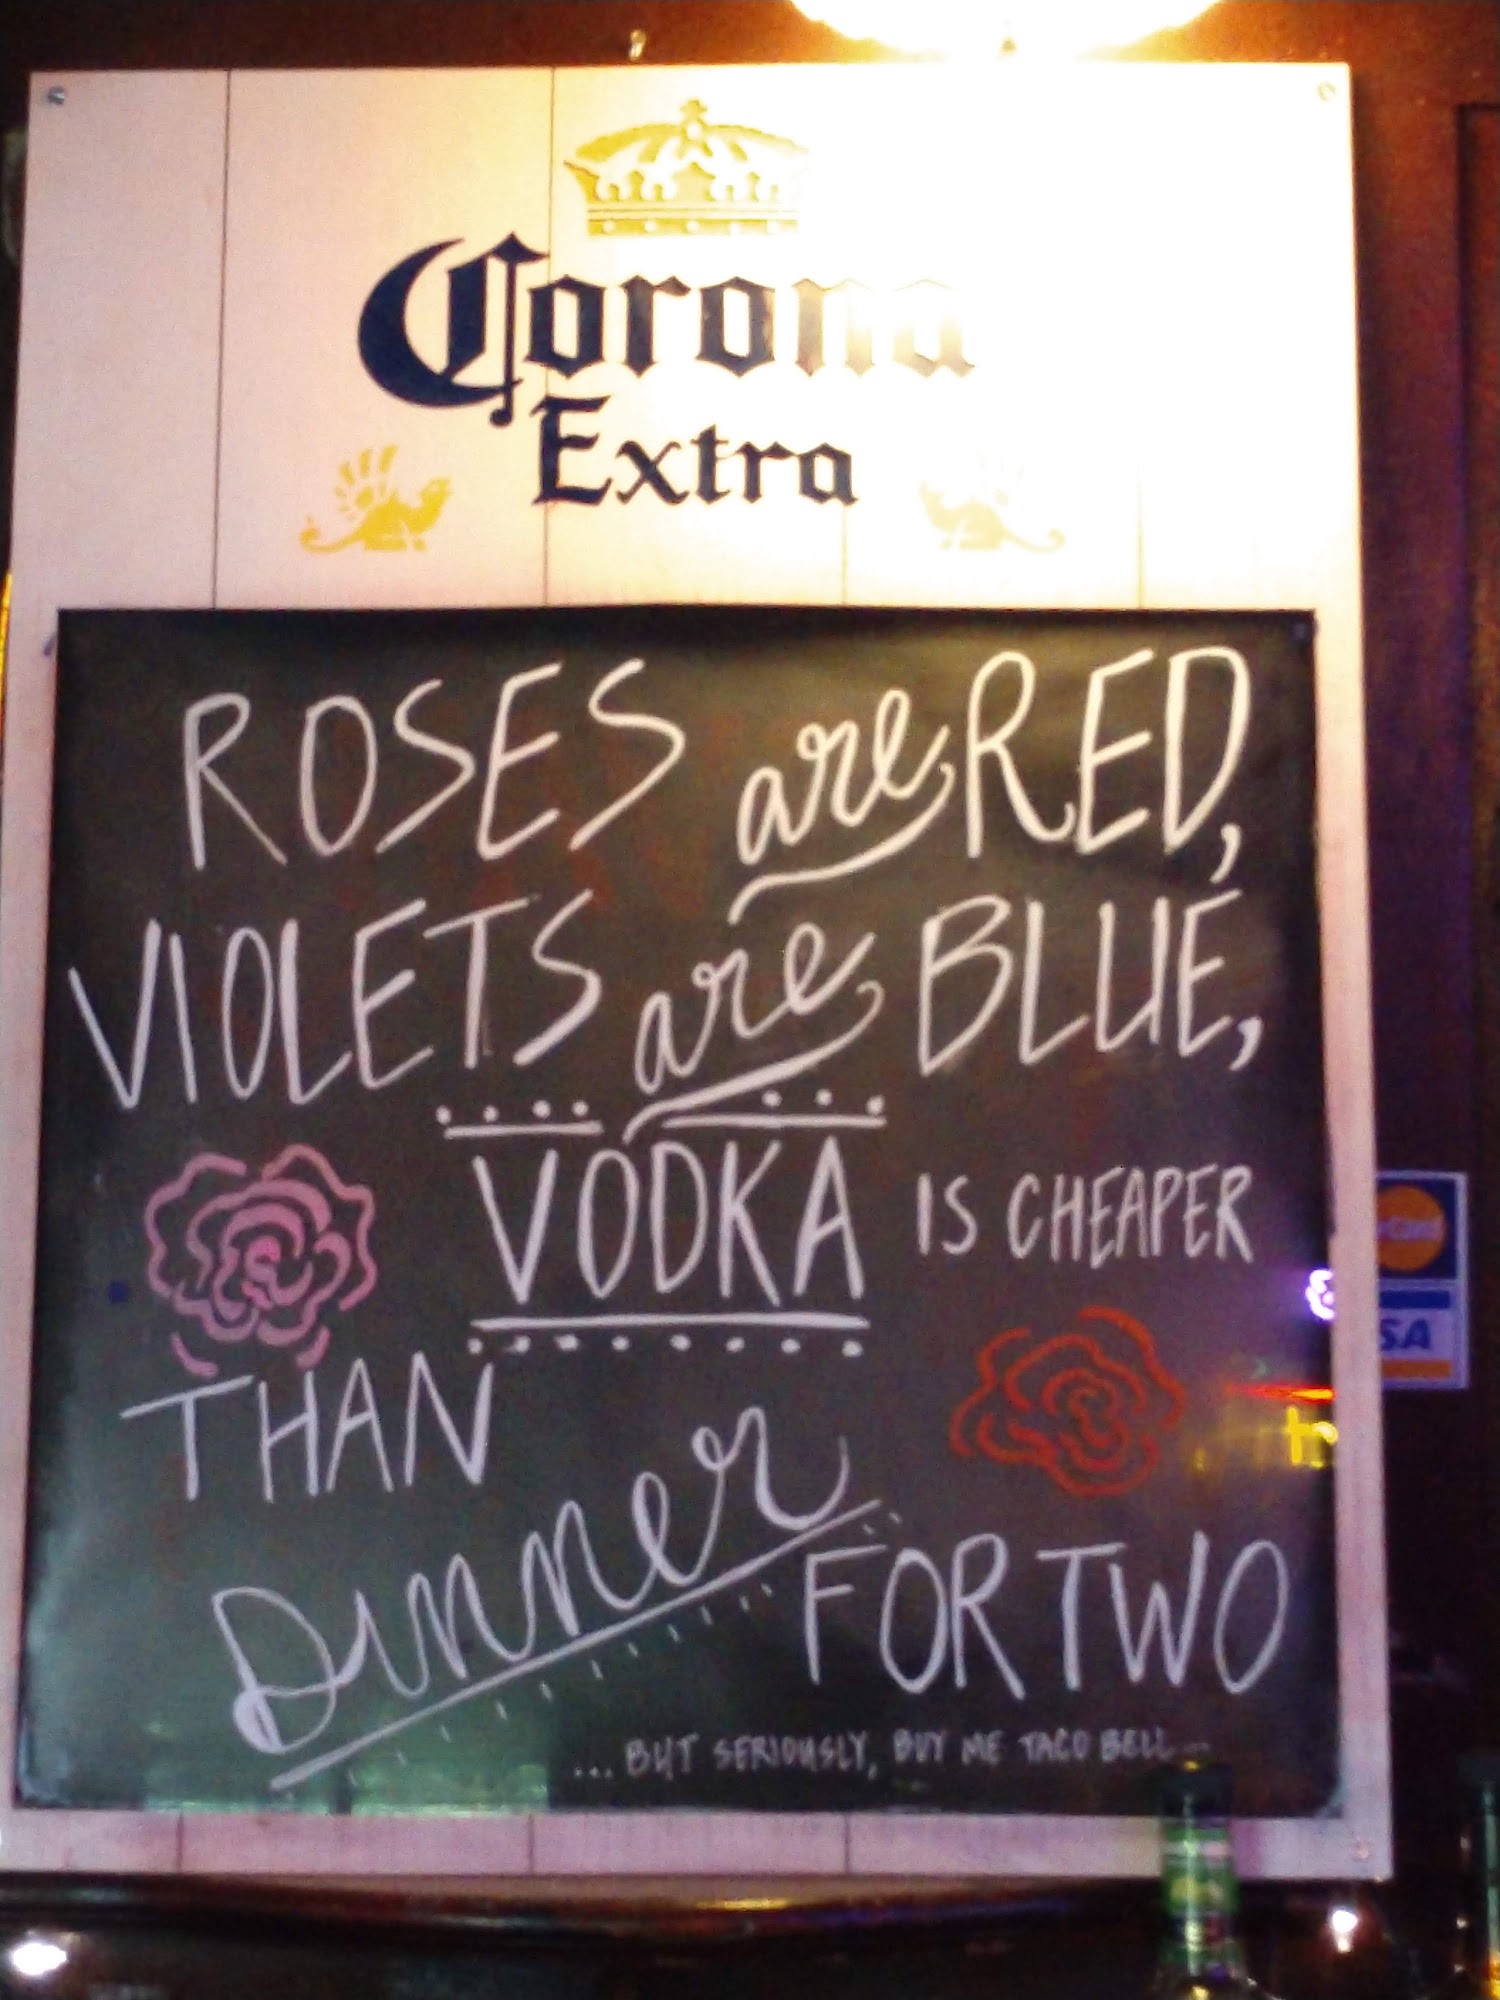 Corona
Extra
ROSES are RED,
VIOLETS are BLUE,
VODKA IS CHEAPER
THAN
Dinner FOR TWO
...BUT SERIOUSLY, BUY ME TACO BELL
SA